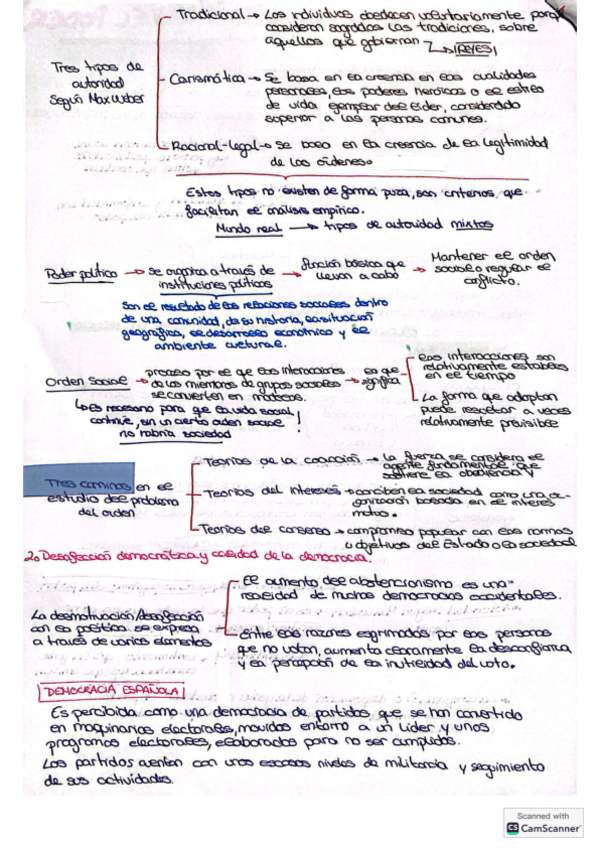 Tradicional → Los individuos obedecen voluntariamente porq
consideran sagradas las tradiciones, sobre
aquellos que gobiernan → REYES
Tres tipos de
autoridad
Según Max Weber
Carismática → Se basa en la creencia en las cualidades
personales, los poderes heroicos o el estilo
de vida ejemplar del líder, considerado
superior a las personas comunes.
Racional-legal → Se basa en la creencia de la legitimidad
de las órdenes.
Estos tipos no existen de forma pura, son criterios, que
facilitan el análisis empírico.
Mundo real → tipos de autoridad mixtos
Poder político → Se organiza a través de
instituciones políticas
→ función básica que
llevan a cabo
→ Mantener el orden
social o regular el
conflicto.
Son el resultado de las relaciones sociales dentro
de una comunidad, de su historia, la situación
geográfica, el desarrollo económico y el
ambiente cultural.
Orden Social → proceso por el que las interacciones
de los miembros de grupos sociales
se convierten en modelos.
→ lo que
significa
Las interacciones son
relativamente estables
en el tiempo
La forma que adoptan
puede resultar a veces
relativamente previsible
↳ Es necesario para que la vida social
continúe, sin un cierto orden social
no habría sociedad
!
Tres caminos en el
estudio del problema
del orden
Teorías de la coacción → la fuerza se considera el
agente fundamental que
obediencia y
Teorías del interés → conciben la sociedad como una or-
ganización basada en el interés
mutuo.
Teorías del consenso → compromiso popular con las normas
u objetivos del Estado o la sociedad
2. Desafección democrática y calidad de la democracia.
La desmotivación/desafección
con la política se expresa
a través de varios elementos
El aumento del abstencionismo es una
realidad de muchas democracias occidentales.
Entre las razones esgrimidas por las personas
que no votan, aumenta claramente la desconfianza
y la percepción de la inutilidad del voto.
DEMOCRACIA ESPAÑOLA
Es percibida como una democracia de partidos que se han convertido
en maquinarias electorales, movidos entorno a un líder y unos
programas electorales, elaborados para no ser cumplidos.
Los partidos cuentan con unos escasos niveles de militancia y seguimiento
de sus actividades.
Scanned with
CS CamScanner